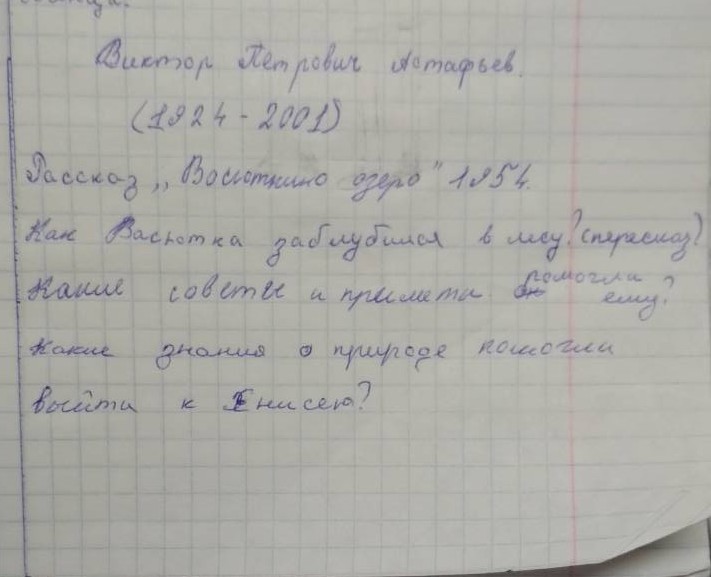 Виктор Петрович Астафьев.
(1924 - 2001)
Рассказ ,,Васюткино озеро" 1954.
Как Васютка заблубился в лесу? (пересказ)
Какие советы и приметы помогли ему?
Какие знания о природе помогли
выйти к Енисею?